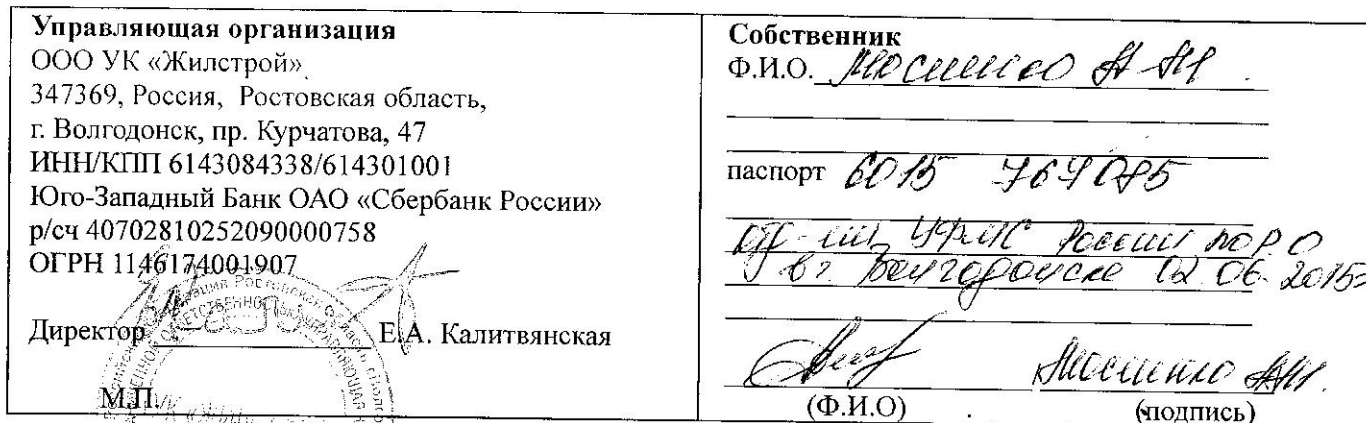 Управляющая организация
ООО УК «Жилстрой»
347369, Россия, Ростовская область,
г. Волгодонск, пр. Курчатова, 47
ИНН/КПП 6143084338/614301001
Юго-Западный Банк ОАО «Сбербанк России»
р/сч 40702810252090000758
ОГРН 1146174001907
Директор Е.А. Калитвянская
М.П.
Собственник
Ф.И.О.
паспорт 6015
УФМС России по Р.О
в г. Волгодонске 02 06. 2015г
(Ф.И.О) (подпись)